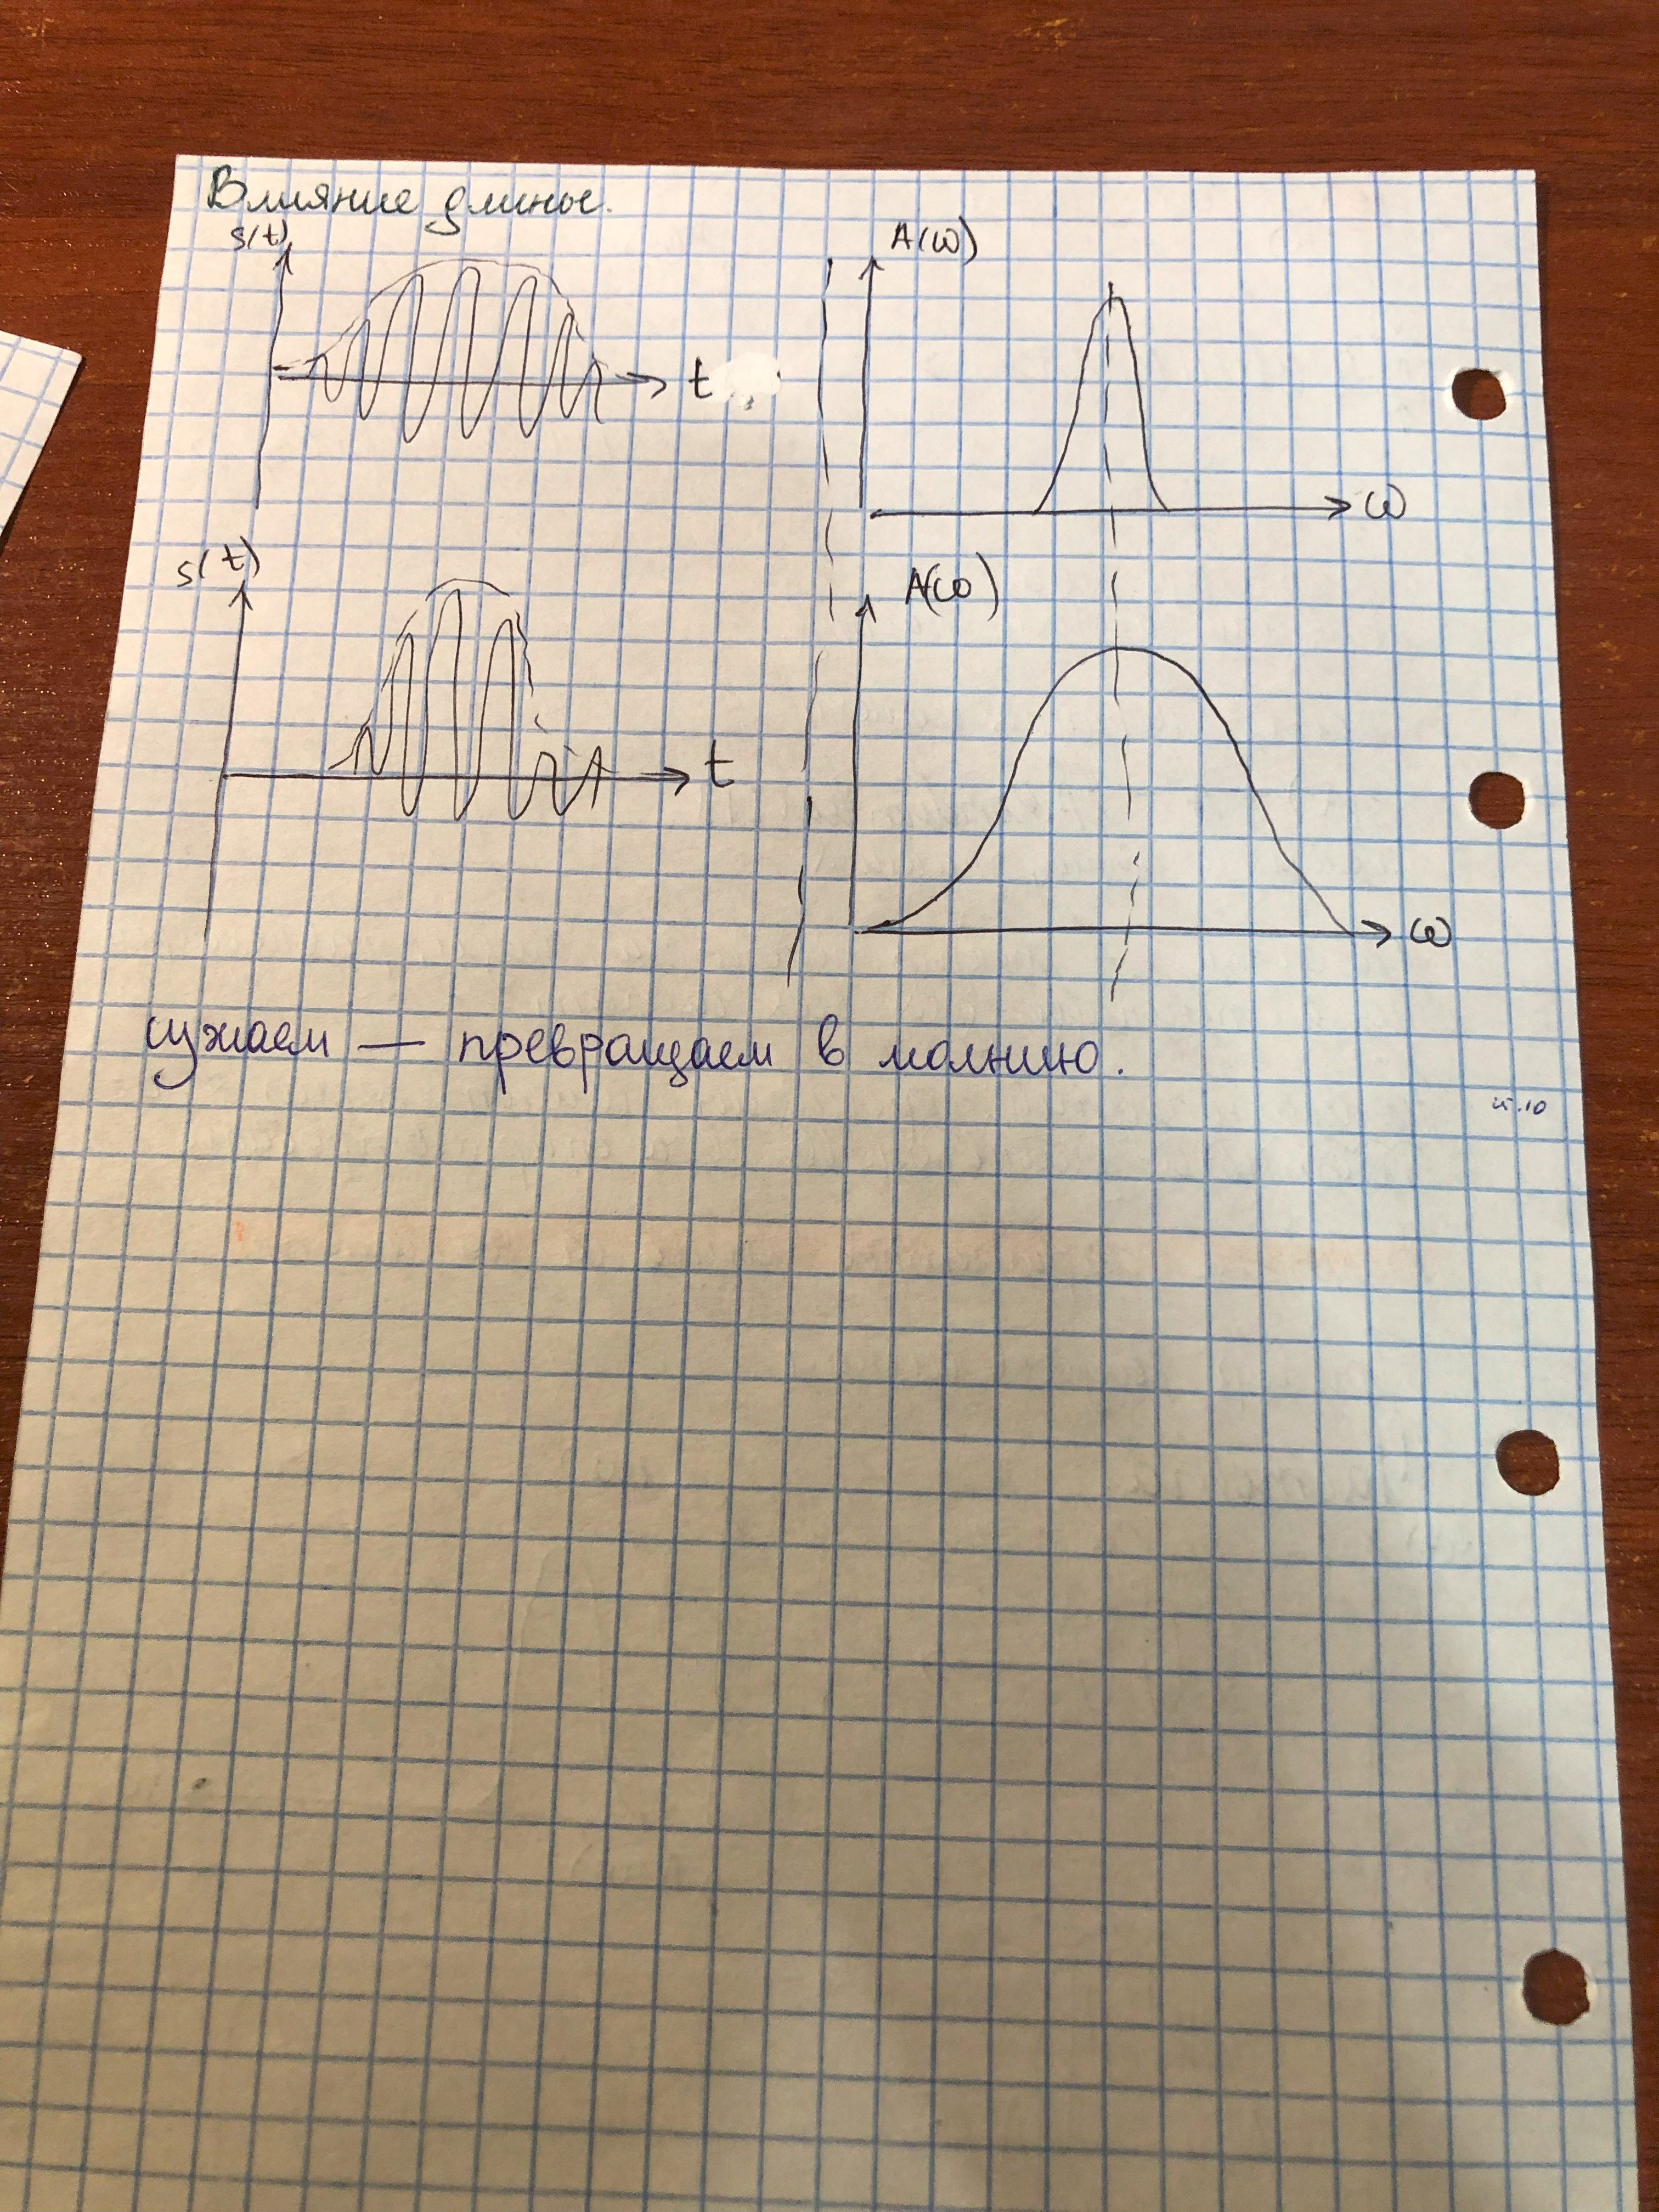 Влияние длины.
s(t)
A(ω)
t
ω
s(t)
A(ω)
t
ω
сужаем — превращаем в молнию.